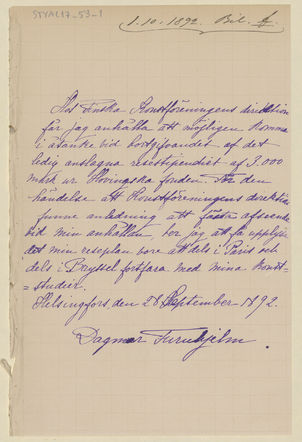 STYAL17-53-1
1.10.1892. Bil.
Hos Finska Konstföreningens direktion
får jag anhålla att möjligen komma
i åtanke vid bortgifvandet af det
ledig anslagna resestipendiet af 3.000
mark ur Hovingska fonden. För den
händelse att Konstföreningens direktion
funne anledning att fästa afseende
vid min anhållan ber jag att få upplysa
det min reseplan vore att dels i Paris och
dels i Bryssel fortfara med mina konst=
=studier.
Helsingfors, den 28 September 1892.
Dagmar Furuhjelm